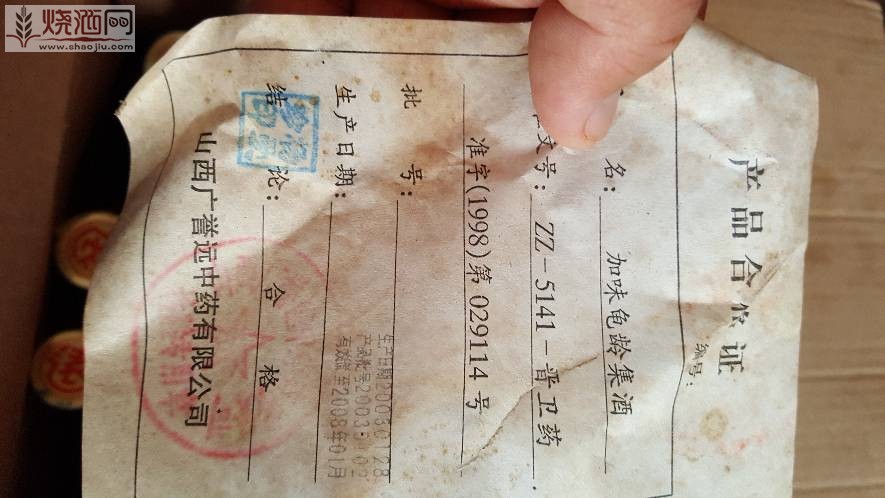 烧酒网
www.shaojiu.com
产品合格证
编号:
名: 加味龟龄集酒
文号: ZZ-5141-晋卫药
准字(1998)第029114号
批 号:
生产日期:
生产日期
产品批号
有效期至2008年01月
结 论: 合 格
山西广誉远中药有限公司